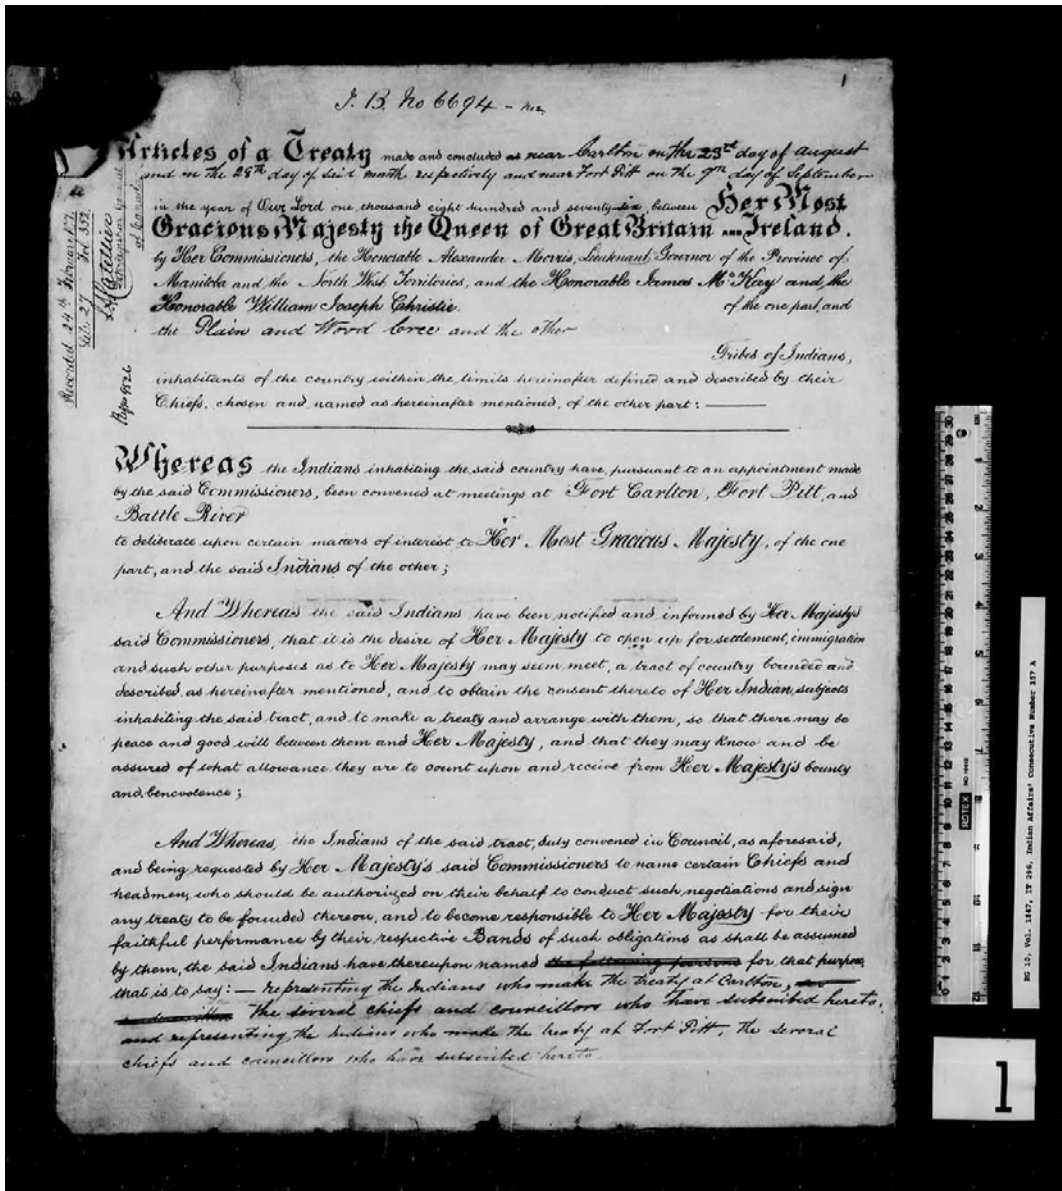 I. B. No 6694 - No 2
1
Articles of a Treaty made and concluded at near Carlton on the 23rd day of August
and on the 28th day of said month respectively and near Fort Pitt on the 9th day of September
in the year of Our Lord one thousand eight hundred and seventy-six, between Her Most
Gracious Majesty the Queen of Great Britain and Ireland.
by Her Commissioners, the Honorable Alexander Morris, Lieutenant Governor of the Province of
Manitoba and the North West Territories, and the Honorable James McKay and the
Honorable William Joseph Christie. of the one part, and
the Plain and Wood Cree and the other
Tribes of Indians,
inhabitants of the country within the limits hereinafter defined and described by their
Chiefs, chosen and named as hereinafter mentioned, of the other part:
Recorded 24th February 1877
Lib. 27 Fol 352.
L A Catellier
Dep Registrar General
of Canada
Refce 9526
Whereas the Indians inhabiting the said country have, pursuant to an appointment made
by the said Commissioners, been convened at meetings at Fort Carlton, Fort Pitt, and
Battle River
to deliberate upon certain matters of interest to Her Most Gracious Majesty, of the one
part, and the said Indians of the other;
And Whereas the said Indians have been notified and informed by Her Majesty's
said Commissioners, that it is the desire of Her Majesty to open up for settlement, immigration
and such other purposes as to Her Majesty may seem meet, a tract of country bounded and
described, as hereinafter mentioned, and to obtain the consent thereto of Her Indian subjects
inhabiting the said tract, and to make a treaty and arrange with them, so that there may be
peace and good will between them and Her Majesty, and that they may know and be
assured of what allowance they are to count upon and receive from Her Majesty's bounty
and benevolence;
And Whereas, the Indians of the said tract, duly convened in Council, as aforesaid,
and being requested by Her Majesty's said Commissioners to name certain Chiefs and
headmen, who should be authorized on their behalf to conduct such negotiations and sign
any treaty to be founded thereon, and to become responsible to Her Majesty for their
faithful performance by their respective Bands of such obligations as shall be assumed
by them, the said Indians have thereupon named the following persons for that purpose,
that is to say: — representing the Indians who make the treaty at Carlton,
the several chiefs and councillors who have subscribed hereto,
and representing the Indians who made the treaty at Fort Pitt, the several
chiefs and councillors who have subscribed hereto.
ROTEX
RG 10, Vol. 1847, IT 296, Indian Affairs' Consecutive Number 157 A
1